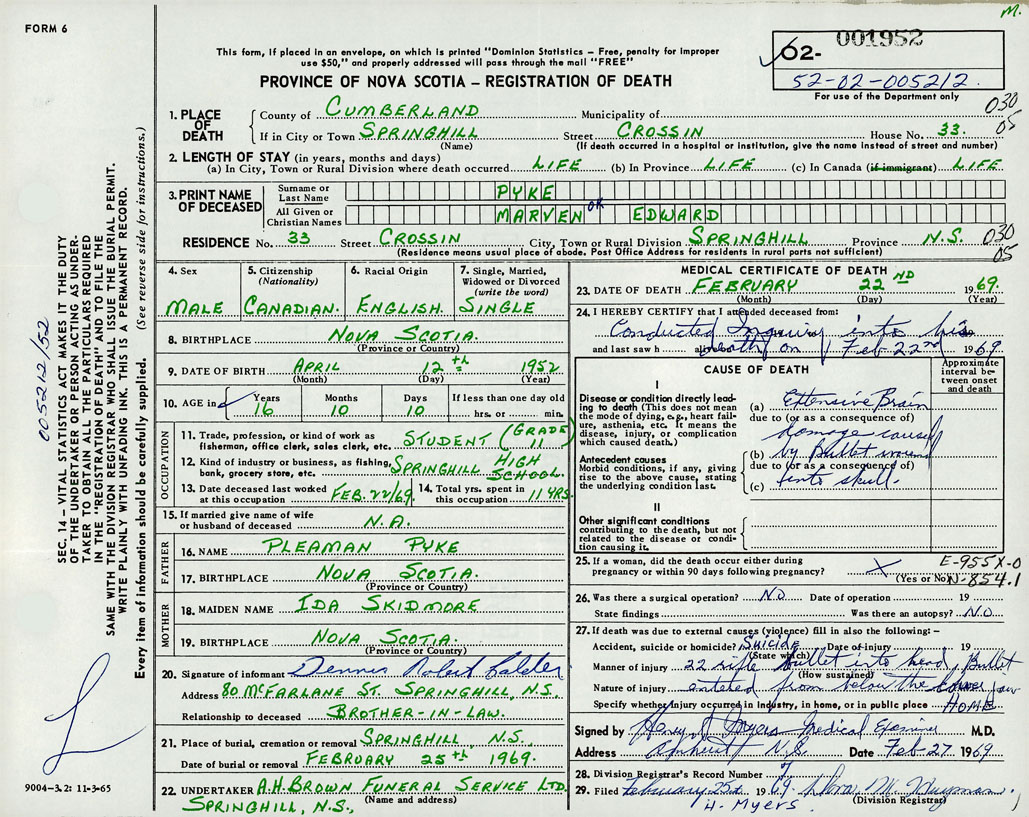 M.
FORM 6
001952
02-
52-02-005212
For use of the Department only
This form, if placed in an envelope, on which is printed "Dominion Statistics – Free, penalty for improper
use $50," and properly addressed will pass through the mail "FREE"
PROVINCE OF NOVA SCOTIA – REGISTRATION OF DEATH
1. PLACE OF DEATH
County of CUMBERLAND Municipality of 030
If in City or Town SPRINGHILL Street CROSSIN House No. 33. 05
(Name) (If death occurred in a hospital or institution, give the name instead of street and number)
2. LENGTH OF STAY (in years, months and days)
(a) In City, Town or Rural Division where death occurred LIFE (b) In Province LIFE (c) In Canada (if immigrant) LIFE
3. PRINT NAME OF DECEASED
Surname or Last Name PYKE
All Given or Christian Names MARVEN OK EDWARD
RESIDENCE No. 33 Street CROSSIN City, Town or Rural Division SPRINGHILL Province N.S. 030
05
(Residence means usual place of abode. Post Office Address for residents in rural parts not sufficient)
4. Sex
MALE
5. Citizenship
(Nationality)
CANADIAN.
6. Racial Origin
ENGLISH.
7. Single, Married,
Widowed or Divorced
(write the word)
SINGLE
8. BIRTHPLACE NOVA SCOTIA.
(Province or Country)
9. DATE OF BIRTH APRIL 12th 1952
(Month) (Day) (Year)
10. AGE in
Years Months Days If less than one day old
16 10 10 hrs. or min.
OCCUPATION
11. Trade, profession, or kind of work as
fisherman, office clerk, sales clerk, etc. STUDENT (GRADE 11)
12. Kind of industry or business, as fishing,
bank, grocery store, etc. SPRINGHILL HIGH SCHOOL.
13. Date deceased last worked
at this occupation FEB. 22/69
14. Total yrs. spent in
this occupation 11 YRS.
15. If married give name of wife
or husband of deceased N.A.
FATHER
16. NAME PLEAMAN PYKE
17. BIRTHPLACE NOVA SCOTIA.
(Province or Country)
MOTHER
18. MAIDEN NAME IDA SKIDMORE
19. BIRTHPLACE NOVA SCOTIA.
(Province or Country)
20. Signature of informant Dennis Robert Calder
Address 80 McFARLANE ST. SPRINGHILL, N.S.
Relationship to deceased BROTHER-IN-LAW.
21. Place of burial, cremation or removal SPRINGHILL N.S.
Date of burial or removal FEBRUARY 25th 1969.
22. UNDERTAKER A.H. BROWN FUNERAL SERVICE LTD.
(Name and address)
SPRINGHILL, N.S.,
MEDICAL CERTIFICATE OF DEATH
23. DATE OF DEATH FEBRUARY 22ND 1969.
(Month) (Day) (Year)
24. I HEREBY CERTIFY that I attended deceased from:
Conducted Inquiry into his
and last saw h alive on death on Feb 22nd 1969
CAUSE OF DEATH
Approximate interval between onset and death
I
Disease or condition directly leading to death (This does not mean the mode of dying, e.g., heart failure, asthenia, etc. It means the disease, injury, or complication which caused death.)
(a) Extensive Brain
due to (or as a consequence of)
damage caused
Antecedent causes
Morbid conditions, if any, giving rise to the above cause, stating the underlying condition last.
(b) by Bullet wound
due to (or as a consequence of)
(c) into skull.
II
Other significant conditions
contributing to the death, but not related to the disease or condition causing it.
25. If a woman, did the death occur either during
pregnancy or within 90 days following pregnancy? X
(Yes or No)
E-955X-0
N-854.1
26. Was there a surgical operation? NO Date of operation 19
State findings Was there an autopsy? NO
27. If death was due to external causes (violence) fill in also the following: –
Accident, suicide or homicide? Suicide Date of injury 19
(State which)
Manner of injury 22 rifle bullet into head, Bullet
(How sustained)
Nature of injury entered from below the lower jaw
Specify whether injury occurred in industry, in home, or in public place HOME
Signed by Medical Examiner M.D.
Address Amherst N.S. Date Feb 27 1969
28. Division Registrar's Record Number 7
29. Filed February 25th 1969
(Division Registrar)
H. Myers.
SEC. 14 – VITAL STATISTICS ACT MAKES IT THE DUTY
OF THE UNDERTAKER OR PERSON ACTING AS UNDER-
TAKER TO OBTAIN ALL THE PARTICULARS REQUIRED
IN THE "REGISTRATION OF DEATH" AND TO FILE THE
SAME WITH THE DIVISION REGISTRAR WHO SHALL ISSUE THE BURIAL PERMIT.
WRITE PLAINLY WITH UNFADING INK. THIS IS A PERMANENT RECORD.
Every item of information should be carefully supplied. (See reverse side for instructions.)
005212/52
9004-3.2: 11-3-65